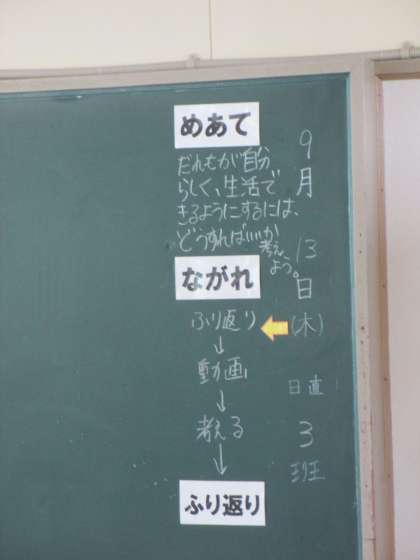 めあて
だれもが自分
らしく、生活で
きるようにするには、
どうすればいいか
考え
よう。
ながれ
ふり返り
↓
動画
↓
考える
↓
ふり返り
9
月
13
日
(木)
日直
3
班